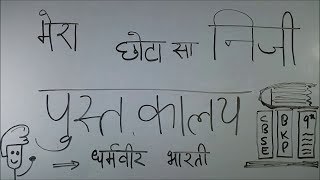 मेरा छोटा सा निजी
पुस्तकालय
→ धर्मवीर भारती
CBSE
BKP